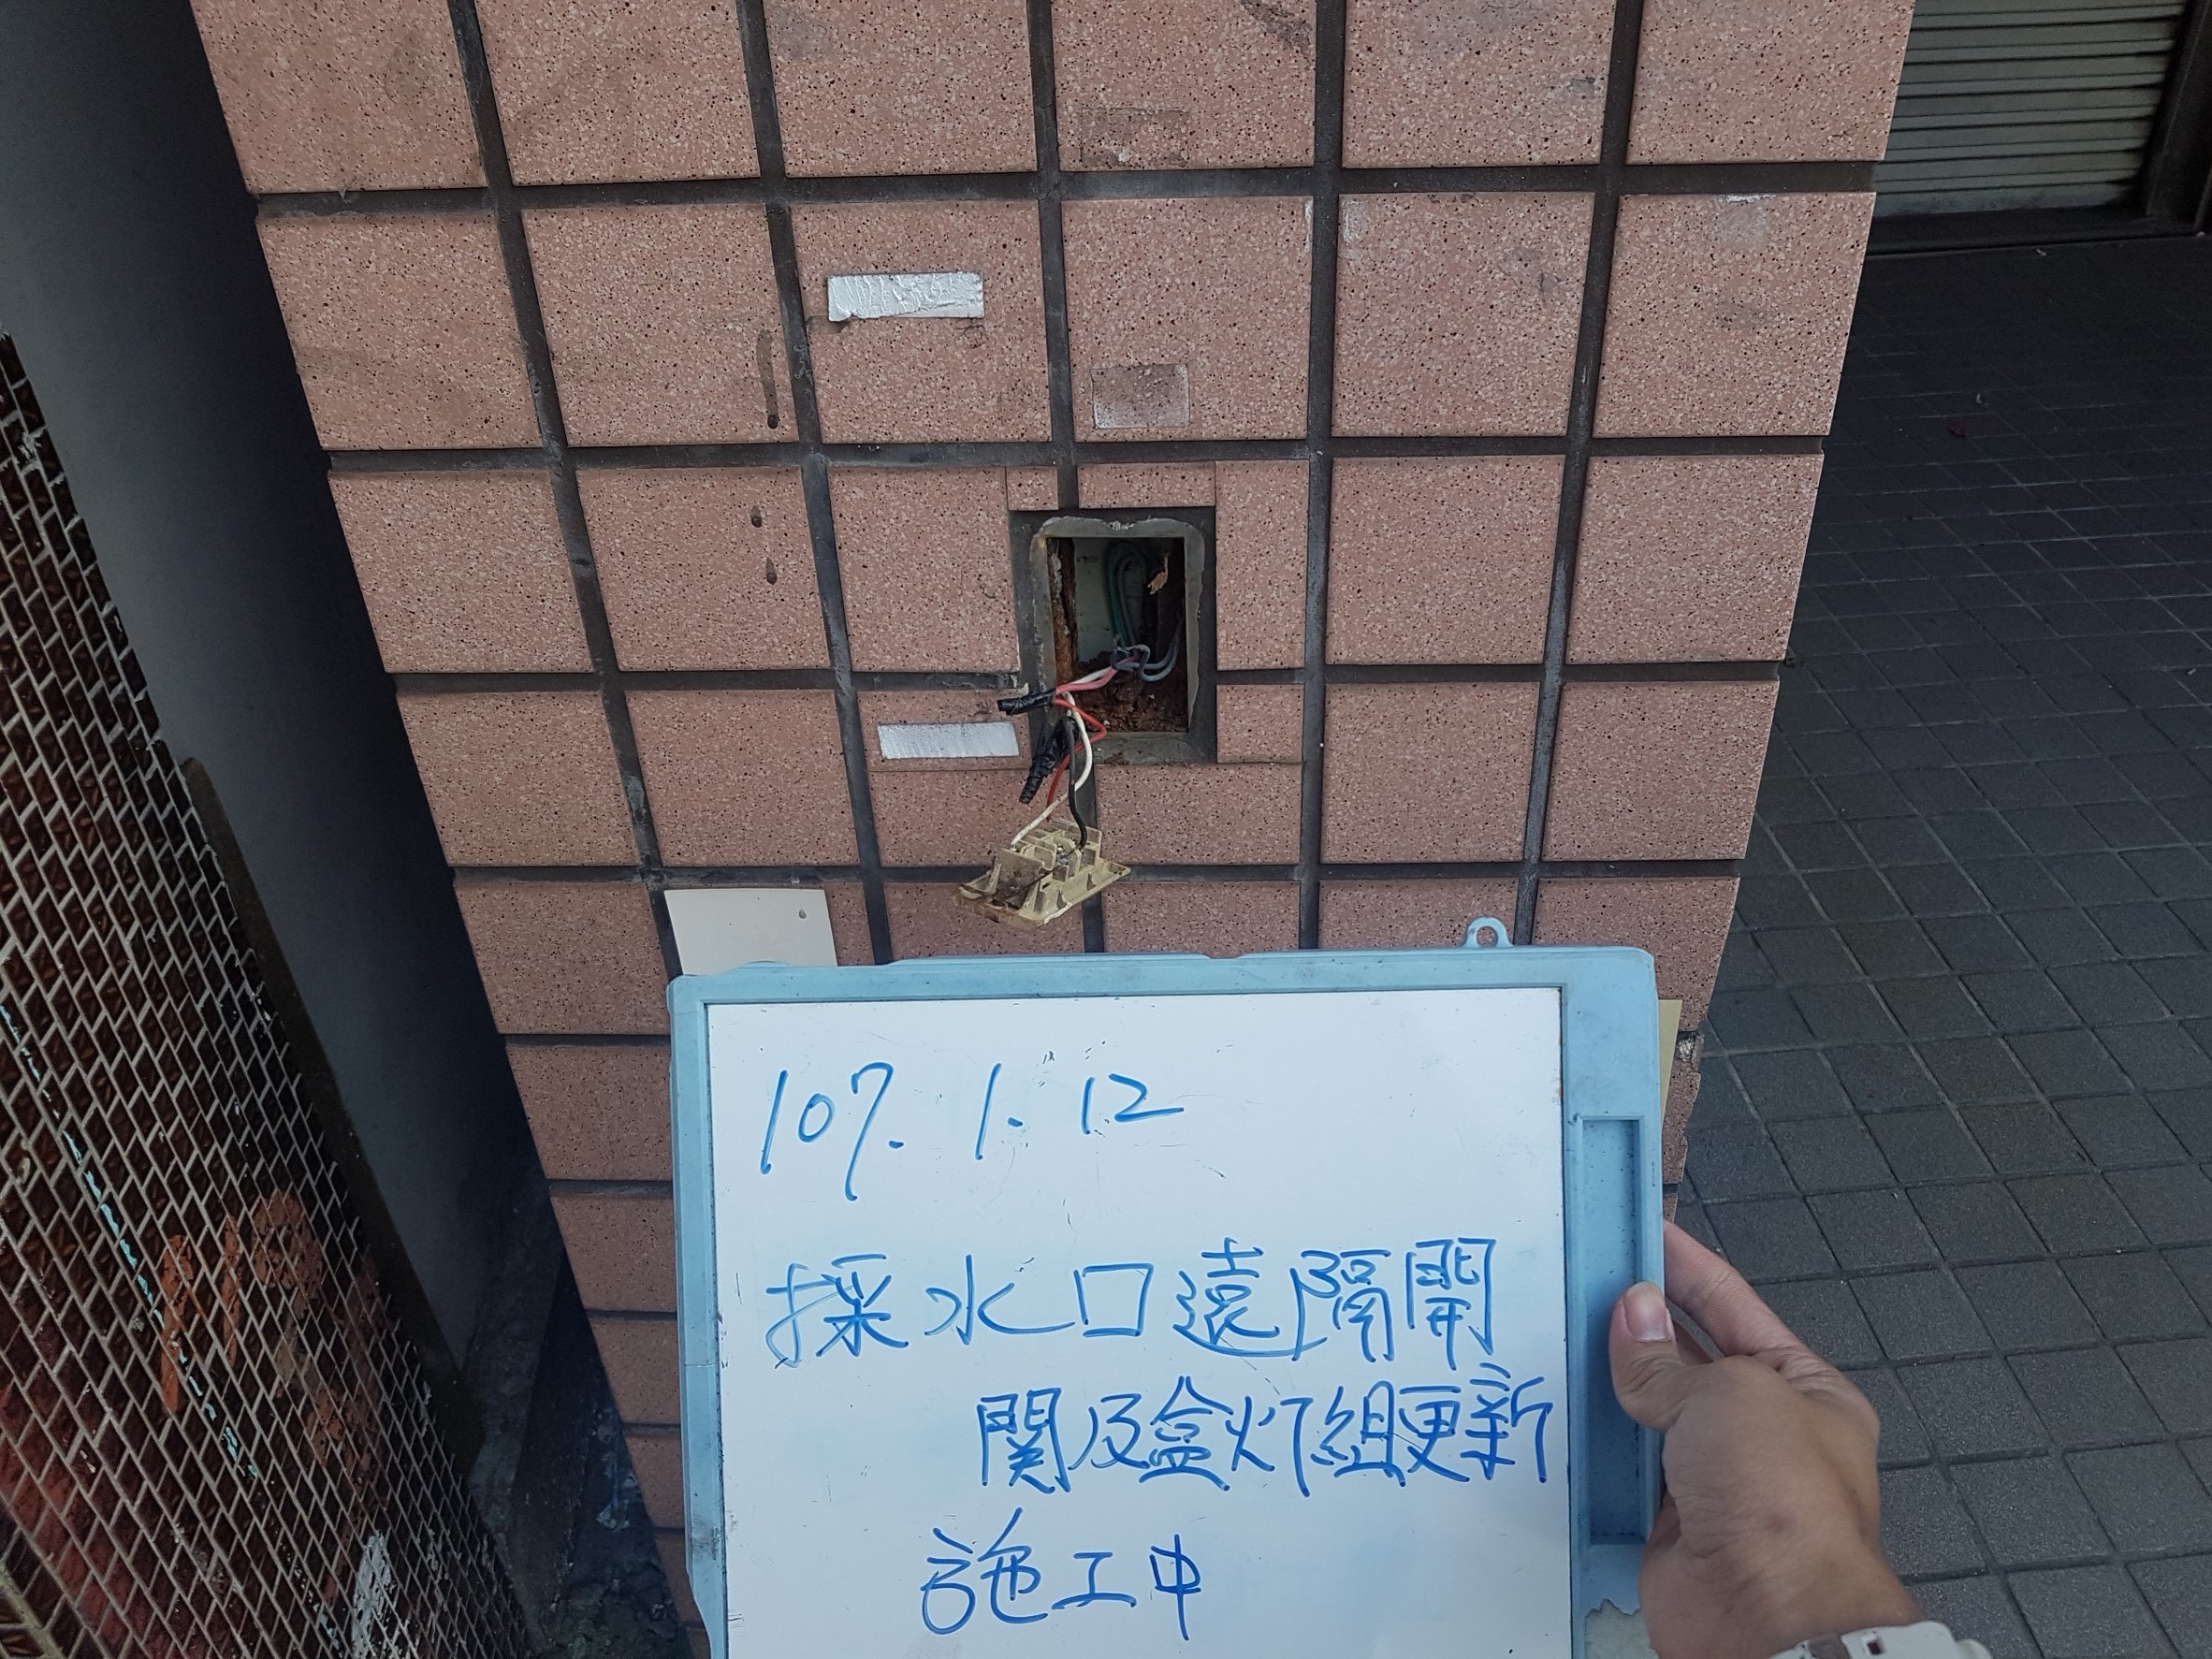 107. 1. 12
採水口遠隔開
関及盒灯組更新
施工中